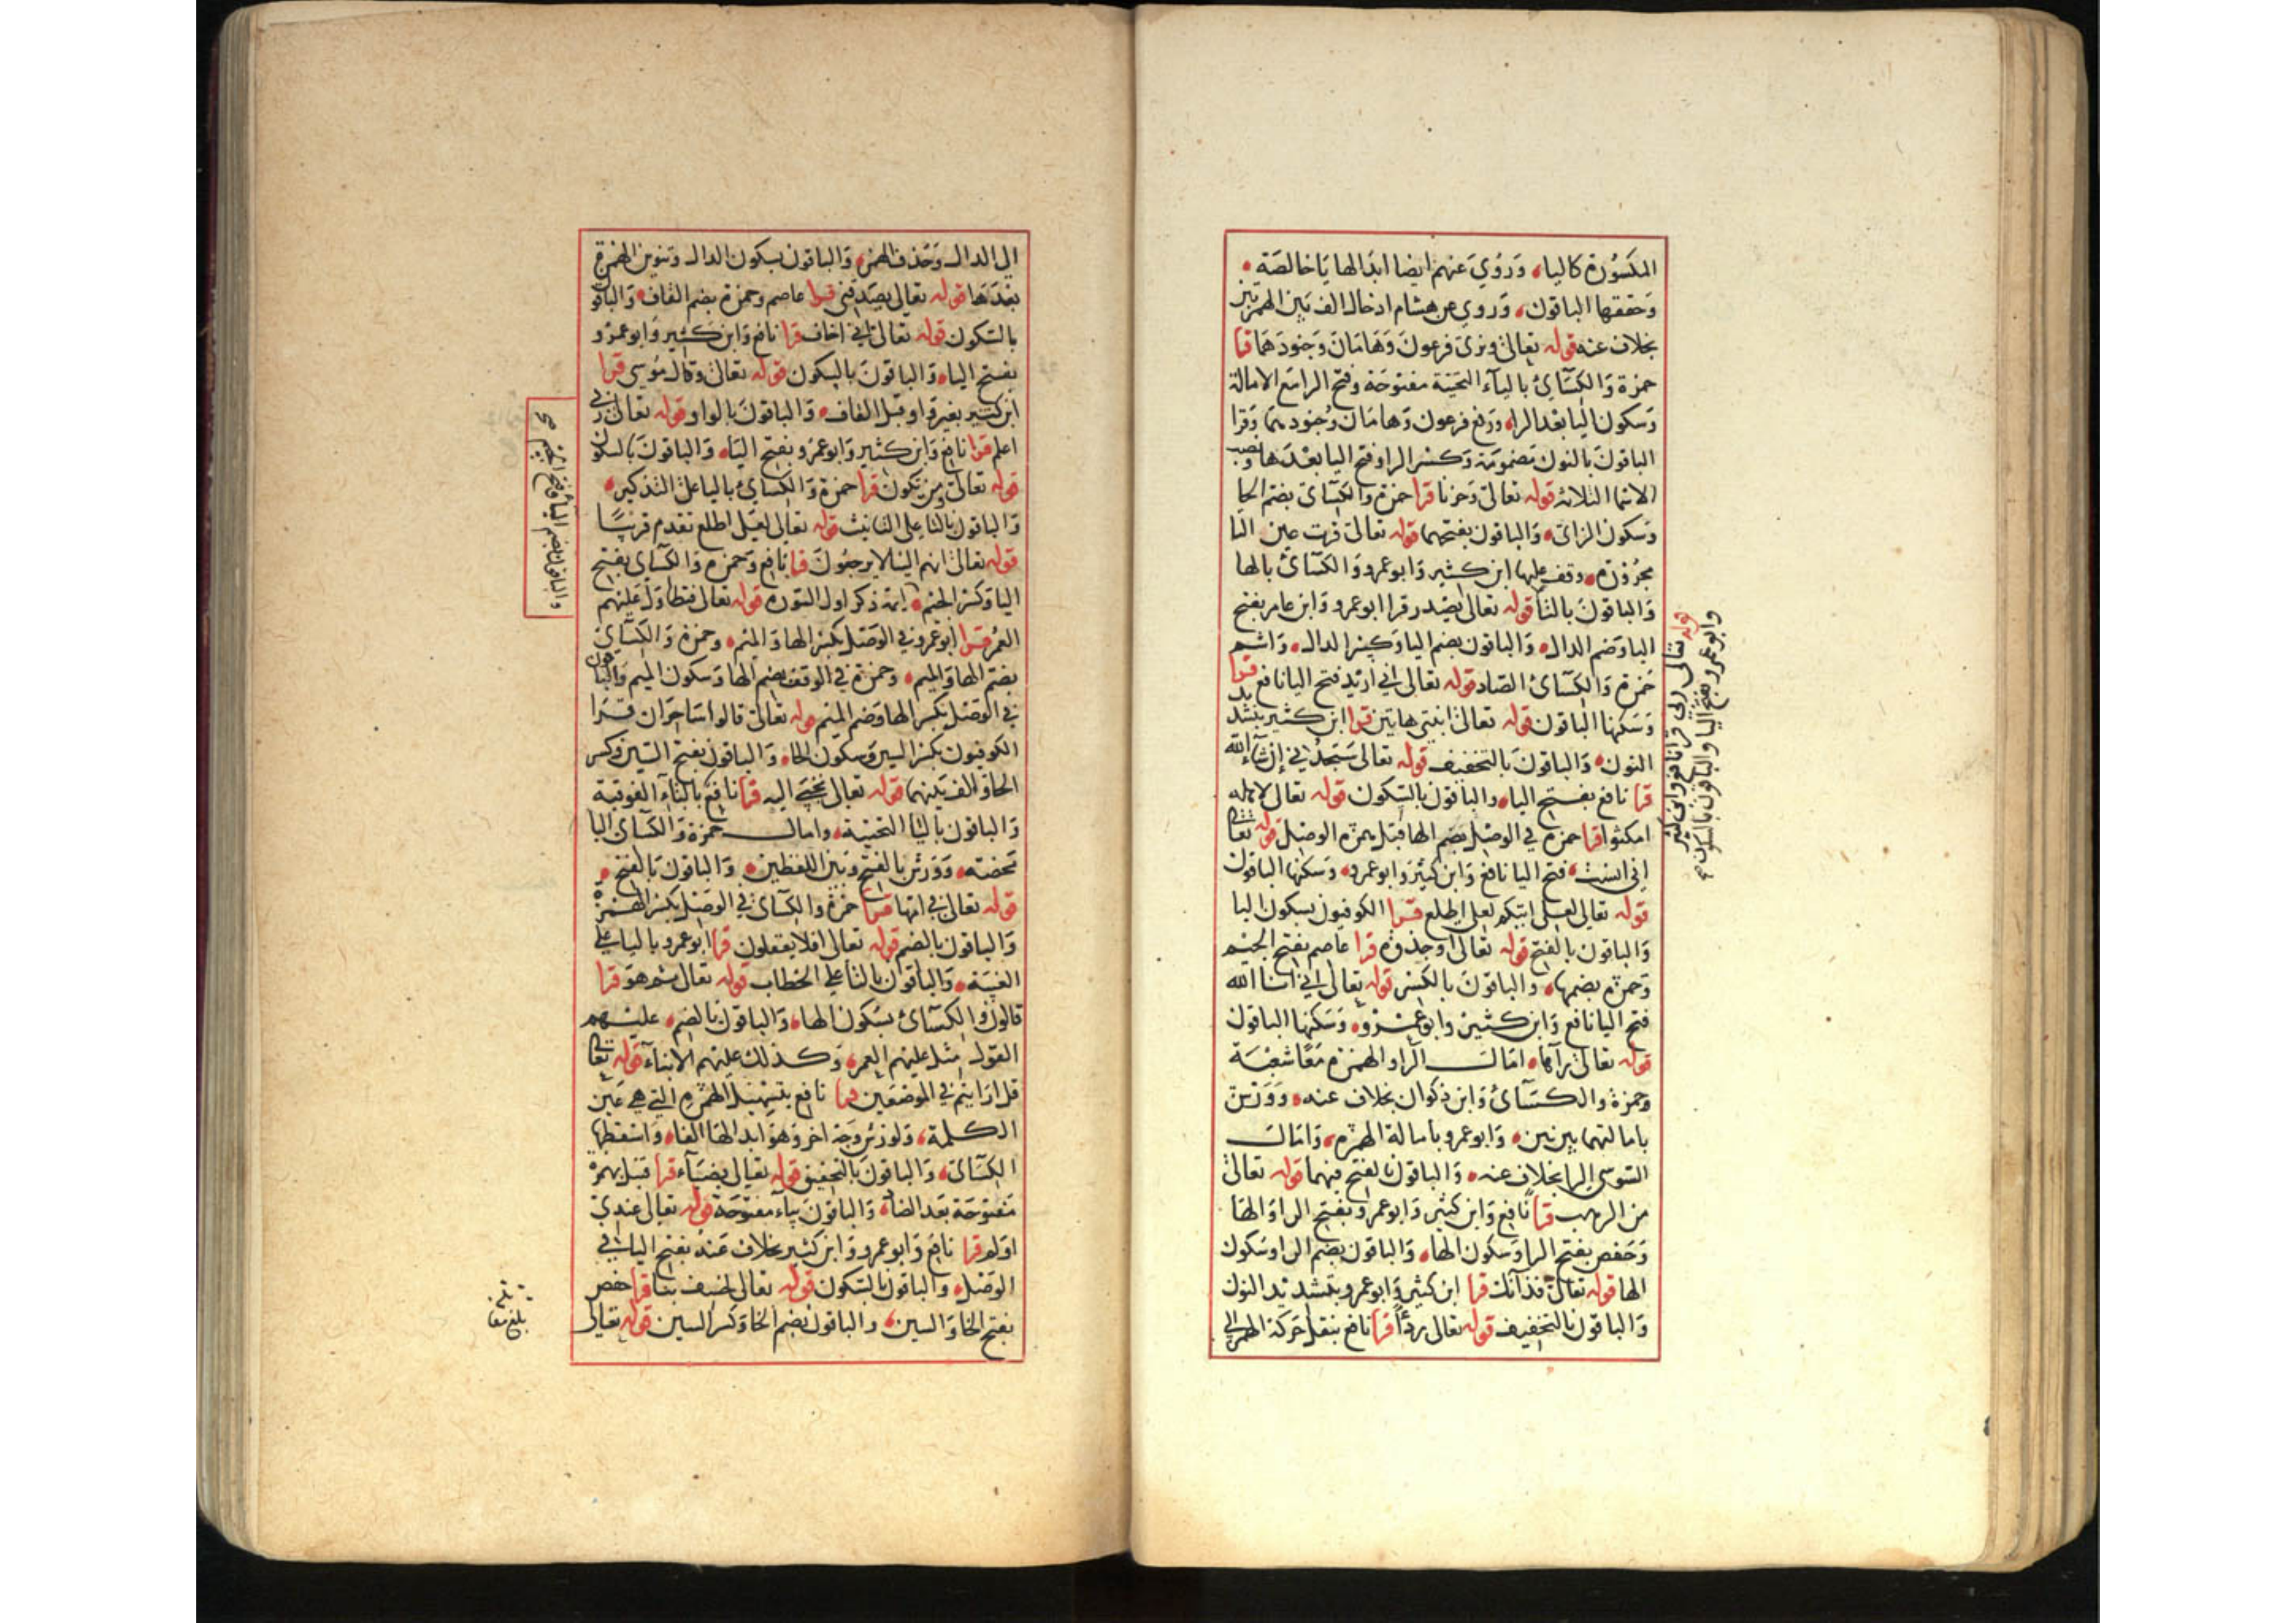 المكسورة كاليا، وروي عنهم ايضا ابدالها يا خالصة
وحققها الباقون، وروي عن هشام ادخال الف بين الهمزتين
بخلاف عنه قوله تعالى ونرى فرعون وهامان وجنودهما قرا
حمزة والكسآئ باليآء التحتية مفتوحة وفتح الرا مع الامالة
وسكون اليا بعد الراء ورفع فرعون وهامان وجنودهما وقرا
الباقون بالنون مضمومة وكسر الرا وفتح اليا بعدها ونصب
الاسما الثلاثه قوله تعالى وحزنا قرا حمزة والكسآئ بضم الحا
وسكون الزاى، والباقون بفتحهما قوله تعالى قرت عين التا
مجرورة، وقف عليها ابن كثير وابو عمرو والكسآئ بالها
والباقون بالتا قوله تعالى يصدر قرا ابو عمرو وابن عامر بفتح
اليا وضم الدال، والباقون بضم اليا وكسر الدال، واشم
حمزة والكسآئ الصاد قوله تعالى اني اريد فتح اليا نافع
وسكنها الباقون قوله تعالى ابنتي هاتين قرا ابن كثير بتشديد
النون، والباقون بالتخفيف قوله تعالى ستجدني ان شآء الله
قرا نافع بفتح الياء والباقون بالسكون قوله تعالى لاهله
امكثوا قرا حمزة في الوصل بضم الها قبل همزة الوصل قوله تعالى
اني انست، فتح اليا نافع وابن كثير وابو عمرو، وسكنها الباقون
قوله تعالى لعلى اتيكم لعلى اطلع قرا الكوفيون بسكون اليا
والباقون بالفتح قوله تعالى او جذوة قرا عاصم بفتح الجيم
وحمزة بضمها، والباقون بالكسر قوله تعالى اني انا الله
فتح اليا نافع وابن كثير وابو عمرو، وسكنها الباقون
قوله تعالى رآها، امال الرا والهمزة معا شعبة
وحمزة والكسآئ وابن ذكوان بخلاف عنه، وورش
بامالتهما بين بين، وابو عمرو بامالة الهمزة، وامال
السوسي الرا بخلاف عنه، والباقون بالفتح فيهما قوله تعالى
من الرهب قرا نافع وابن كثير وابو عمرو بفتح الرا والها
وحفص بفتح الرا وسكون الها، والباقون بضم الرا وسكون
الها قوله تعالى فذانك قرا ابن كثير وابو عمرو بتشديد النون
والباقون بالتخفيف قوله تعالى ردءا قرا نافع بنقل حركة الهمزة الى
قوله تعالى ربي قرا نافع وابن كثير
وابو عمرو بفتح اليا والباقون بالسكون صح
الى الدال وحذف الهمزة، والباقون بسكون الدال وتنوين الهمزة
بعدها قوله تعالى يصدقني قرا عاصم وحمزة بضم القاف، والباقون
بالسكون قوله تعالى اني اخاف قرا نافع وابن كثير وابو عمرو
بفتح الياء، والباقون بالسكون قوله تعالى وقال موسى قرا
ابن كثير بغير واو قبل القاف، والباقون بالواو قوله تعالى ربي
اعلم قرا نافع وابن كثير وابو عمرو بفتح الياء، والباقون بالسكون
قوله تعالى ومن تكون قرا حمزة والكسآئ باليا على التذكير،
والباقون بالتا على التانيث قوله تعالى لعلى اطلع تقدم قريبًا
قوله تعالى انهم الينا لا يرجعون قرا نافع وحمزة والكسآئ بفتح
اليا وكسر الجيم، ائمة ذكر اول السورة قوله تعالى فتطاول عليهم
العمر قرا ابو عمرو في الوصل بكسر الها والميم، وحمزة والكسآئ
بضم الها والميم، وحمزة في الوقف بضم الها وسكون الميم والباقون
في الوصل بكسر الها وضم الميم قوله تعالى قالوا ساحران قرا
الكوفيون بكسر السين وسكون الحاء، والباقون بفتح السين وكسر
الحا والف بينهما قوله تعالى يجبى اليه قرا نافع بالتآء الفوقية
والباقون باليا التحتية، وامال حمزة والكسآئ اليا
محضة، وورش بالفتح وبين اللفظين، والباقون بالفتح،
قوله تعالى في امها قرا حمزة والكسآئ في الوصل بكسر الهمزة
والباقون بالضم قوله تعالى افلا يعقلون قرا ابو عمرو باليا على
الغيبة، والباقون بالتا على الخطاب قوله تعالى ثم هو قرا
قالون والكسآئ بسكون الهاء، والباقون بالضم، عليهم
القول مثل عليهم العمر، وكذلك عليهم الانبآء قوله تعالى
قل ارايتم في الموضعين قرا نافع بتسهيل الهمزة التي هي عين
الكلمة، ولورش وجه اخر وهو ابدالها الفا، واسقطها
الكسآئ، والباقون بالتحقيق قوله تعالى بضيآء قرا قنبل بهمزة
مفتوحة بعد الضاد، والباقون بيآء مفتوحة قوله تعالى عندي
اولم قرا نافع وابو عمرو وابن كثير بخلاف عنه بفتح اليا في
الوصل، والباقون بالسكون قوله تعالى لخسف بنا قرا حفص
بفتح الخا والسين، والباقون بضم الخا وكسر السين قوله تعالى
والباقون بضم اليا وفتح الجيم صح
بلغ مقابلة